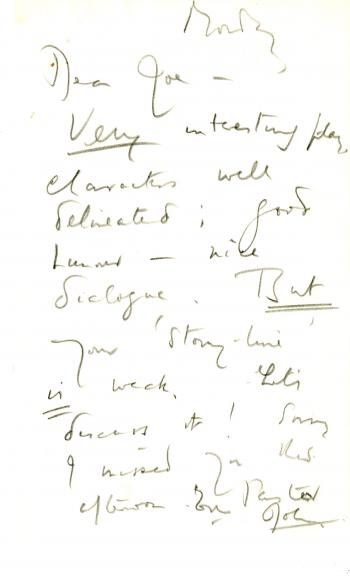 Monday
Dear Joe —
Very interesting play,
characters well
delineated; good
humour — nice
dialogue. But
your 'story-line'
is weak. Let's
discuss it! Sorry
I missed you this
afternoon.
John